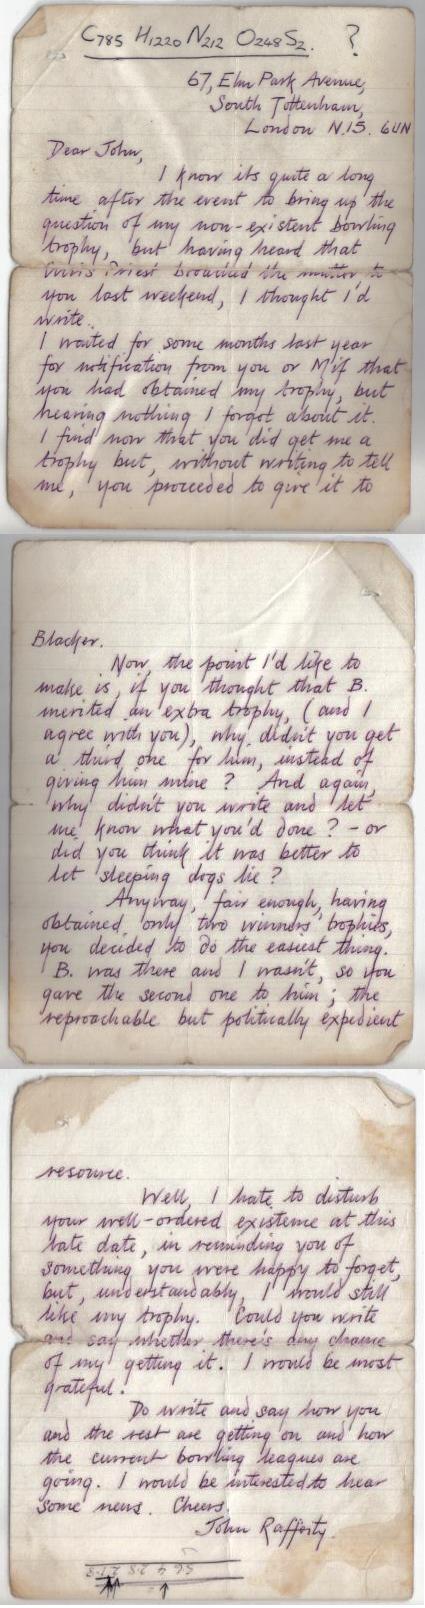 C785 H1220 N212 O248 S2. ?
67, Elm Park Avenue,
South Tottenham,
London N.15. 6UN
Dear John,
I know its quite a long
time after the event to bring up the
question of my non-existent bowling
trophy, but having heard that
Chris Priest broached the matter to
you last weekend, I thought I'd
write.
I waited for some months last year
for notification from you or M'if that
you had obtained my trophy, but
hearing nothing I forgot about it.
I find now that you did get me a
trophy but, without writing to tell
me, you proceeded to give it to
Blacker.
Now, the point I'd like to
make is, if you thought that B.
merited an extra trophy, (and I
agree with you), why didn't you get
a third one for him, instead of
giving him mine? And again,
why didn't you write and let
me know what you'd done? - or
did you think it was better to
let sleeping dogs lie?
Anyway, fair enough, having
obtained only two winners' trophies,
you decided to do the easiest thing.
B. was there and I wasn't, so you
gave the second one to him; the
reproachable but politically expedient
resource.
Well, I hate to disturb
your well-ordered existence at this
late date, in reminding you of
something you were happy to forget,
but, understandably, I would still
like my trophy. Could you write
and say whether there's any chance
of my getting it. I would be most
grateful.
Do write and say how you
and the rest are getting on and how
the current bowling leagues are
going. I would be interested to hear
some news. Cheers.
John Rafferty.